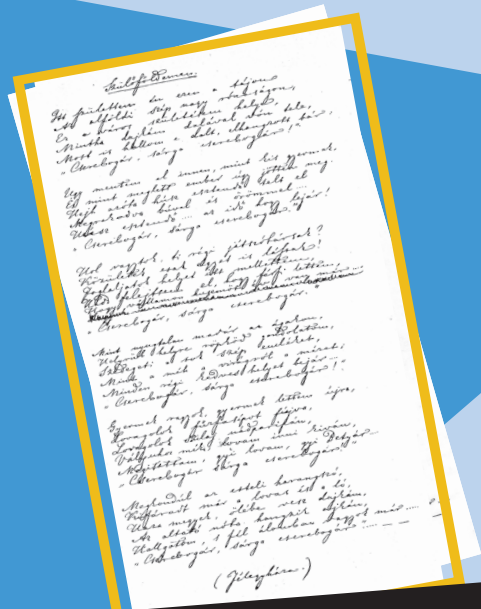 Szülőföldemen.
Itt születtem én ezen a tájon
Az alföldi szép nagy rónaságon,
Ez a város születésem helye,
Mintha dajkám dalával vón tele,
Most is hallom e dalt, elhangzott bár,
„Cserebogár, sárga cserebogár!"
Ugy mentem el innen, mint kis gyermek,
És mint meglett ember úgy jöttem meg.
Hejh azóta húsz esztendő telt el
Megrakodva búval és örömmel....
Húsz esztendő.... az idő hogy lejár!
„Cserebogár, sárga cserebogár."
Hol vagytok, ti régi játszótársak?
Közületek csak egyet is lássak!
Foglaljatok helyet itt mellettem,
Hadd felejtsem el, hogy férfi lettem,
Hogy vállamon huszonöt év van már...
„Cserebogár, sárga cserebogár."
Mint nyugtalan madár az ágakon,
Helyrül helyre röpköd gondolatom,
Szedegeti a sok szép emléket,
Mint a méh a virágról a mézet;
Minden régi kedves helyet bejár...
„Cserebogár, sárga cserebogár!"
Gyermek vagyok, gyermek lettem újra,
Lovagolok fűzfasípot fújva,
Lovagolok szilaj nádparipán,
Vályuhoz mék, lovam inni kíván,
Megitattam, gyi lovam, gyi Betyár...
„Cserebogár sárga cserebogár!"
Megkondúl az esteli harangszó,
Kifáradt már a lovas és a ló,
Haza megyek, ölébe vesz dajkám,
Az altató nóta hangzik ajkán,
Hallgatom, s fél álomban vagyok már....
„Cserebogár, sárga cserebogár"....
(Félegyháza.)